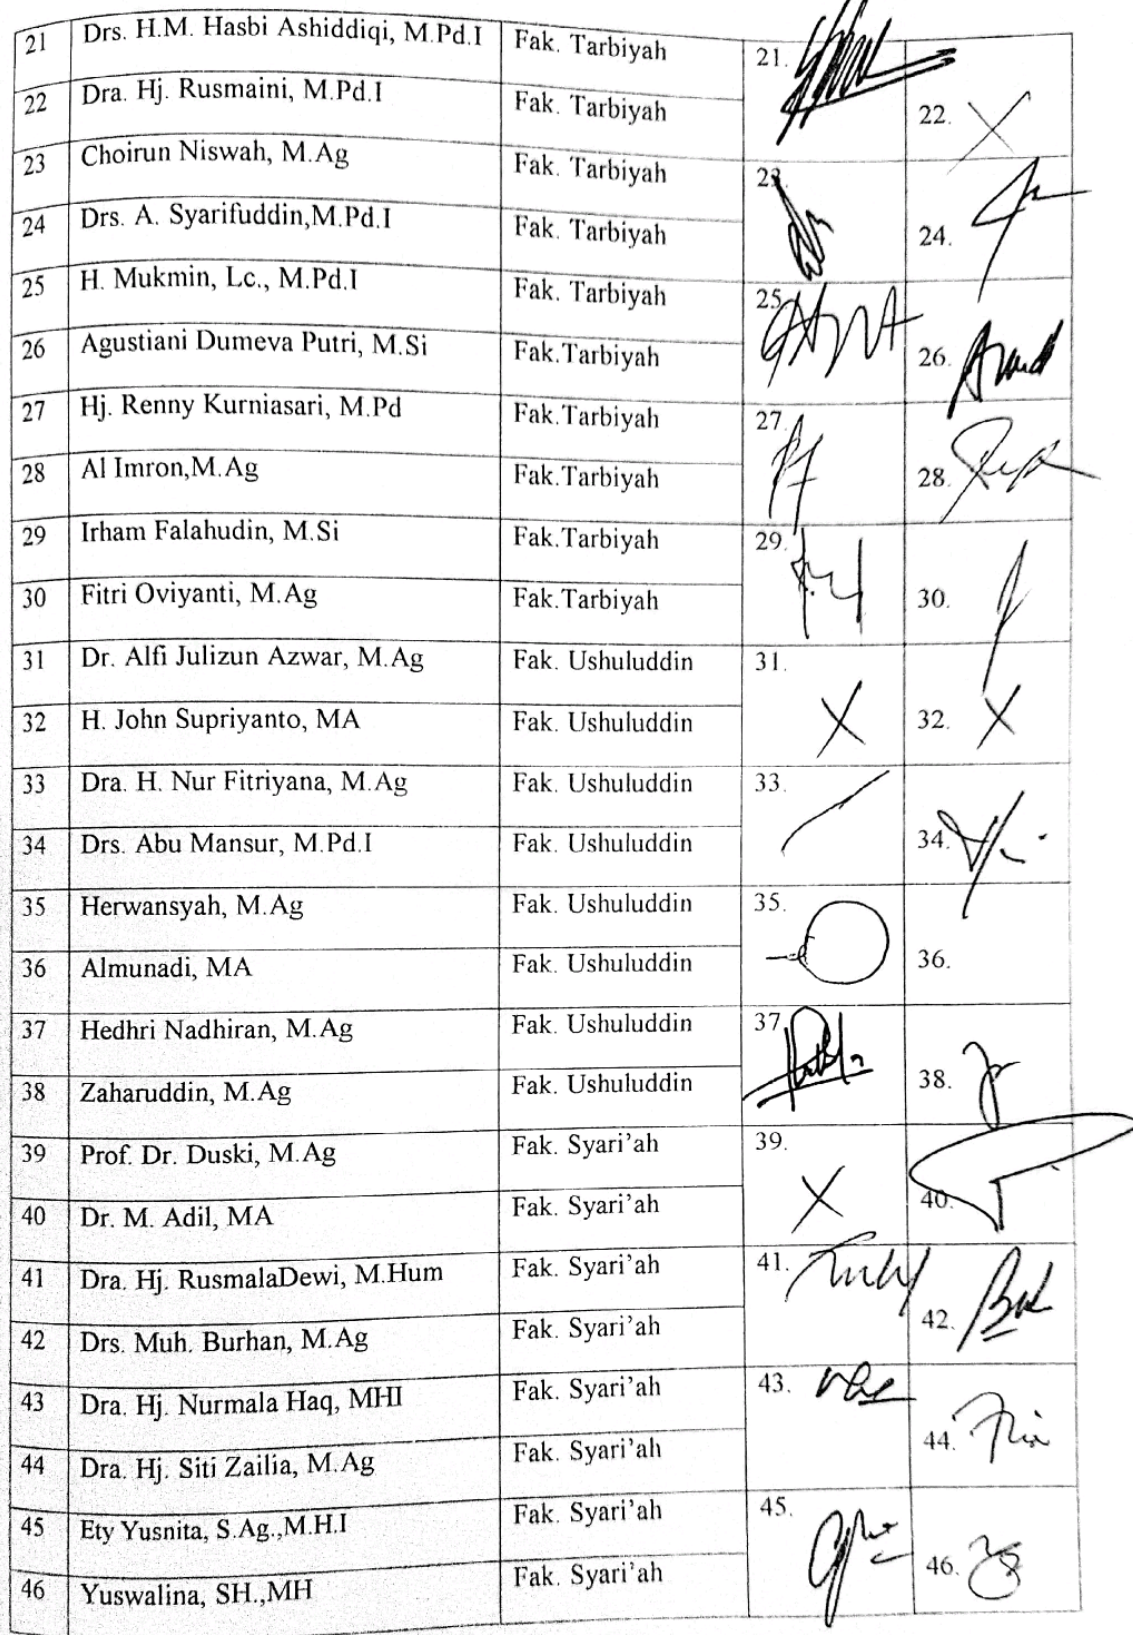 21 Drs. H.M. Hasbi Ashiddiqi, M.Pd.I Fak. Tarbiyah 21.
22 Dra. Hj. Rusmaini, M.Pd.I Fak. Tarbiyah 22.
23 Choirun Niswah, M.Ag Fak. Tarbiyah 23.
24 Drs. A. Syarifuddin,M.Pd.I Fak. Tarbiyah 24.
25 H. Mukmin, Lc., M.Pd.I Fak. Tarbiyah 25.
26 Agustiani Dumeva Putri, M.Si Fak.Tarbiyah 26.
27 Hj. Renny Kurniasari, M.Pd Fak.Tarbiyah 27.
28 Al Imron,M.Ag Fak.Tarbiyah 28.
29 Irham Falahudin, M.Si Fak.Tarbiyah 29.
30 Fitri Oviyanti, M.Ag Fak.Tarbiyah 30.
31 Dr. Alfi Julizun Azwar, M.Ag Fak. Ushuluddin 31.
32 H. John Supriyanto, MA Fak. Ushuluddin 32.
33 Dra. H. Nur Fitriyana, M.Ag Fak. Ushuluddin 33.
34 Drs. Abu Mansur, M.Pd.I Fak. Ushuluddin 34.
35 Herwansyah, M.Ag Fak. Ushuluddin 35.
36 Almunadi, MA Fak. Ushuluddin 36.
37 Hedhri Nadhiran, M.Ag Fak. Ushuluddin 37.
38 Zaharuddin, M.Ag Fak. Ushuluddin 38.
39 Prof. Dr. Duski, M.Ag Fak. Syari'ah 39.
40 Dr. M. Adil, MA Fak. Syari'ah 40.
41 Dra. Hj. RusmalaDewi, M.Hum Fak. Syari'ah 41.
42 Drs. Muh. Burhan, M.Ag Fak. Syari'ah 42.
43 Dra. Hj. Nurmala Haq, MHI Fak. Syari'ah 43.
44 Dra. Hj. Siti Zailia, M.Ag Fak. Syari'ah 44.
45 Ety Yusnita, S.Ag.,M.H.I Fak. Syari'ah 45.
46 Yuswalina, SH.,MH Fak. Syari'ah 46.